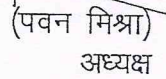 (पवन मिश्रा)
अध्यक्ष